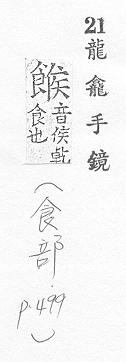 21龍龕手鏡
餱
音侯乹
食也
(食部.
p.499)